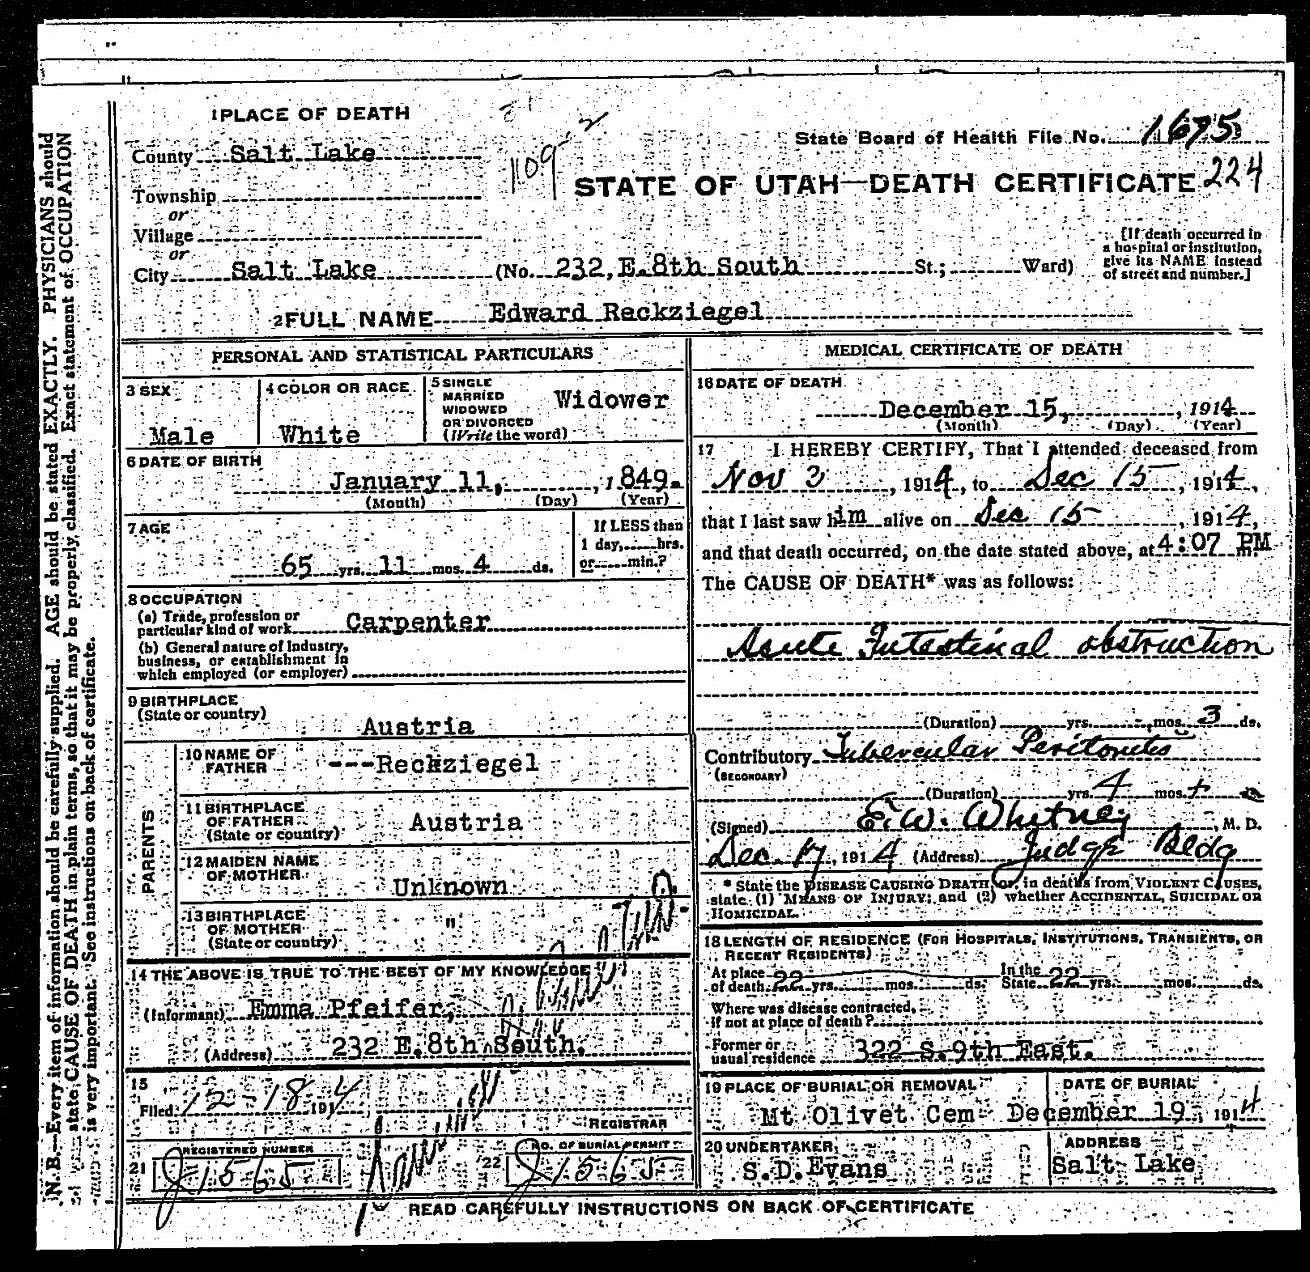 1 PLACE OF DEATH
County Salt Lake
Township
or
Village
or
City Salt Lake (No. 232, E. 8th South St.; Ward)
1109
State Board of Health File No. 1675
STATE OF UTAH—DEATH CERTIFICATE 224
[If death occurred in
a hospital or institution,
give its NAME instead
of street and number.]
2 FULL NAME Edward Reckziegel
PERSONAL AND STATISTICAL PARTICULARS
3 SEX
Male
4 COLOR OR RACE
White
5 SINGLE
MARRIED
WIDOWED
OR DIVORCED
(Write the word)
Widower
6 DATE OF BIRTH
January 11, , 1849.
(Month) (Day) (Year)
7 AGE
65 yrs. 11 mos. 4 ds.
If LESS than
1 day, hrs.
or min.?
8 OCCUPATION
(a) Trade, profession or
particular kind of work Carpenter
(b) General nature of Industry,
business, or establishment in
which employed (or employer)
9 BIRTHPLACE
(State or country)
Austria
PARENTS
10 NAME OF
FATHER ---Reckziegel
11 BIRTHPLACE
OF FATHER
(State or country) Austria
12 MAIDEN NAME
OF MOTHER
Unknown
13 BIRTHPLACE
OF MOTHER
(State or country) "
14 THE ABOVE IS TRUE TO THE BEST OF MY KNOWLEDGE
(Informant) Emma Pfeifer,
(Address) 232 E. 8th South.
15
Filed 12-18 1914
REGISTRAR
21 REGISTERED NUMBER
J1565
22 NO. OF BURIAL PERMIT
J1565
MEDICAL CERTIFICATE OF DEATH
16 DATE OF DEATH
December 15, , 1914
(Month) (Day) (Year)
17 I HEREBY CERTIFY, That I attended deceased from
Nov 3 , 1914, to Dec 15 , 1914,
that I last saw him alive on Dec 15 , 1914,
and that death occurred, on the date stated above, at 4:07 PM
The CAUSE OF DEATH* was as follows:
Acute Intestinal obstruction
(Duration) yrs. mos. 3 ds.
Contributory Tubercular Peritonitis
(SECONDARY)
(Duration) yrs. 4 mos. +
(Signed) E. W. Whitney, M. D.
Dec. 17, 1914 (Address) Judge Bldg
* State the DISEASE CAUSING DEATH, or, in deaths from VIOLENT CAUSES,
state (1) MEANS OF INJURY; and (2) whether ACCIDENTAL, SUICIDAL OR
HOMICIDAL.
18 LENGTH OF RESIDENCE (FOR HOSPITALS, INSTITUTIONS, TRANSIENTS, OR
RECENT RESIDENTS)
At place
of death 22 yrs. mos. ds.
In the
State 22 yrs. mos. ds.
Where was disease contracted,
if not at place of death?
Former or
usual residence 322 S. 9th East.
19 PLACE OF BURIAL OR REMOVAL
Mt Olivet Cem
DATE OF BURIAL
December 19 1914
20 UNDERTAKER
S. D. Evans
ADDRESS
Salt Lake
READ CAREFULLY INSTRUCTIONS ON BACK OF CERTIFICATE
N. B.—Every item of information should be carefully supplied. AGE should be stated EXACTLY. PHYSICIANS should
state CAUSE OF DEATH in plain terms, so that it may be properly classified. Exact statement of OCCUPATION
is very important. See instructions on back of certificate.